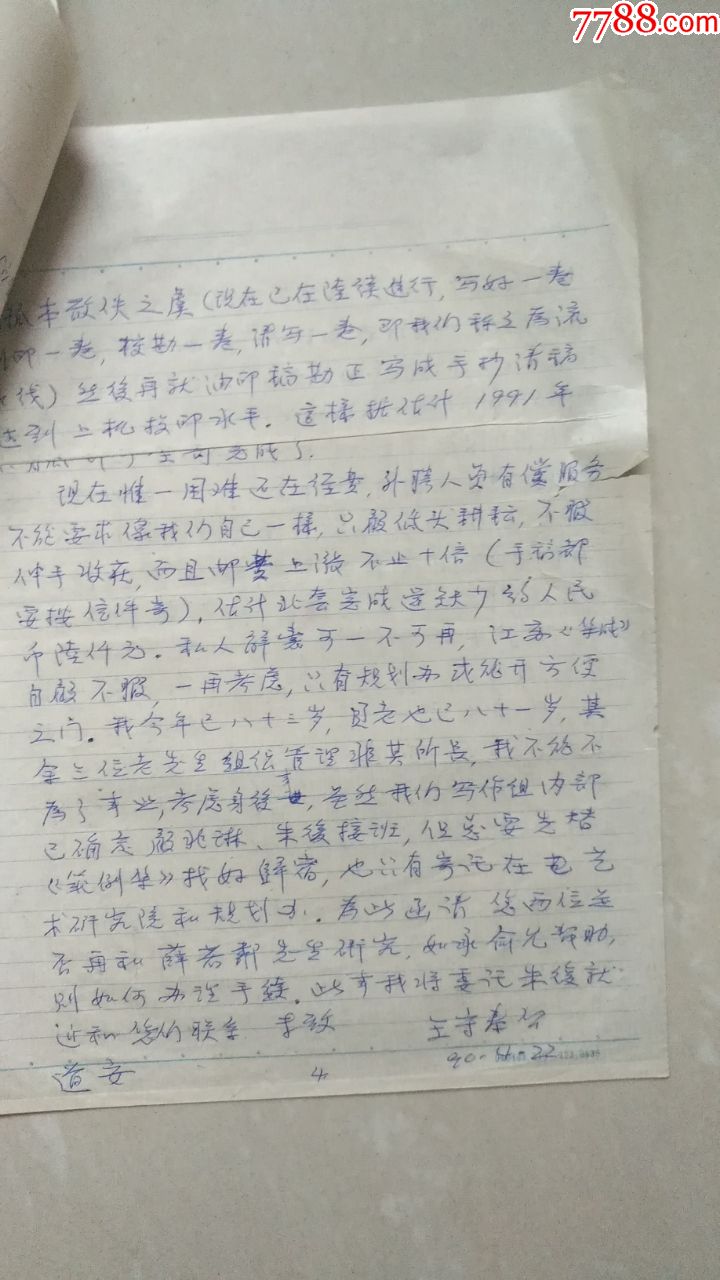 7788.com
孤本散佚之虞(现在已在陸续进行,写好一卷
印一卷,校勘一卷,谱写一卷,即我们称之为流
线)然後再就油印稿勘正写成手抄清稿
达到上机投印水平。这样就估计1991年
完成了.
现在惟一困难还在经费,外聘人员有償服务
不能要求像我们自己一样,只顾低头耕耘,不暇
伸手收获,而且邮费上涨不止十倍(手稿部
要按信件寄),估计此套完成还缺少约人民
币陸仟元。私人解囊可一不可再,江苏《集成》
自顾不暇,一再考虑,只有规划办或能开方便
之门。我今年已八十三岁,老也已八十一岁,其
余三位老先生组织管理非其所長,我不能不
为了事业,考虑身後事,虽然我们写作组内部
已确定顾兆琳、朱復接班,但总要先替
《範例集》找好归宿,也只有寄托在文艺
术研究院和规划办。为此函请您两位是
否再和薛若邻先生研究,如承俞允帮助,
则如何办理手续。此事我将委託朱復就
近和您们联系。 李致
王守泰
90-22
道安
4